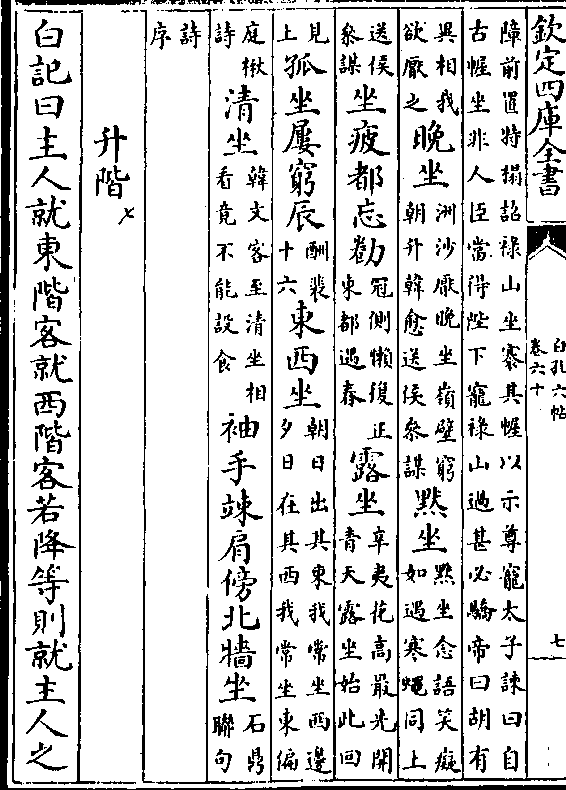 欽定四庫全書
白孔六帖
卷六十
七
障前置特榻詔祿山坐褰其幄以示尊寵太子諫曰自
古幄坐非人臣當得陛下寵祿山過甚必驕帝曰胡有
異相我
欲厭之
晚坐
洲沙厭晚坐嶺壁窮
朝升韓愈送侯叅謀
黙坐
黙坐念語笑癡
如遇寒蠅同上
送侯
叅謀
坐疲都忘勸
冠側懶復正
東都遇春
露坐
辛夷花高最先開
青天露坐始此回
見
上
孤坐屢窮辰
酬裴
十六
東西坐
朝日出其東我常坐西邊
夕日在其西我常坐東偏
庭楸
詩
清坐
韓文客至清坐相
看竟不能設食
袖手竦肩傍北牆坐
石鼎
聯句
詩
序
升階
白記曰主人就東階客就西階客若降等則就主人之